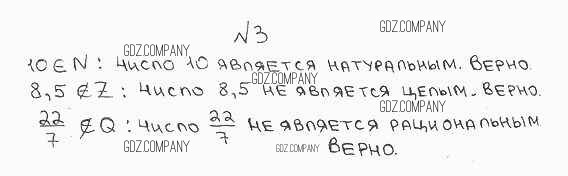 №3
GDZ.COMPANY
GDZ.COMPANY
10 ∈ N : число 10 является натуральным. Верно.
GDZ.COMPANY
8,5 ∉ Z : число 8,5 не является целым. Верно.
GDZ.COMPANY
22/7 ∉ Q : число 22/7 не является рациональным
GDZ.COMPANY
GDZ.COMPANY
Верно.